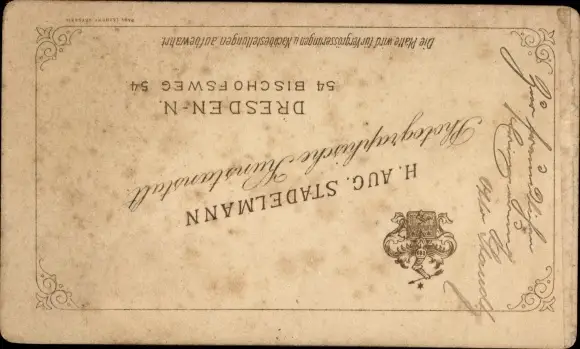 H. AUG. STADELMANN
Photographische Kunstanstalt.
DRESDEN-N.
54 BISCHOFSWEG 54.
Die Platte wird für Vergrösserungen u. Nachbestellungen aufbewahrt.
Zur freundlichen
Erinnerung